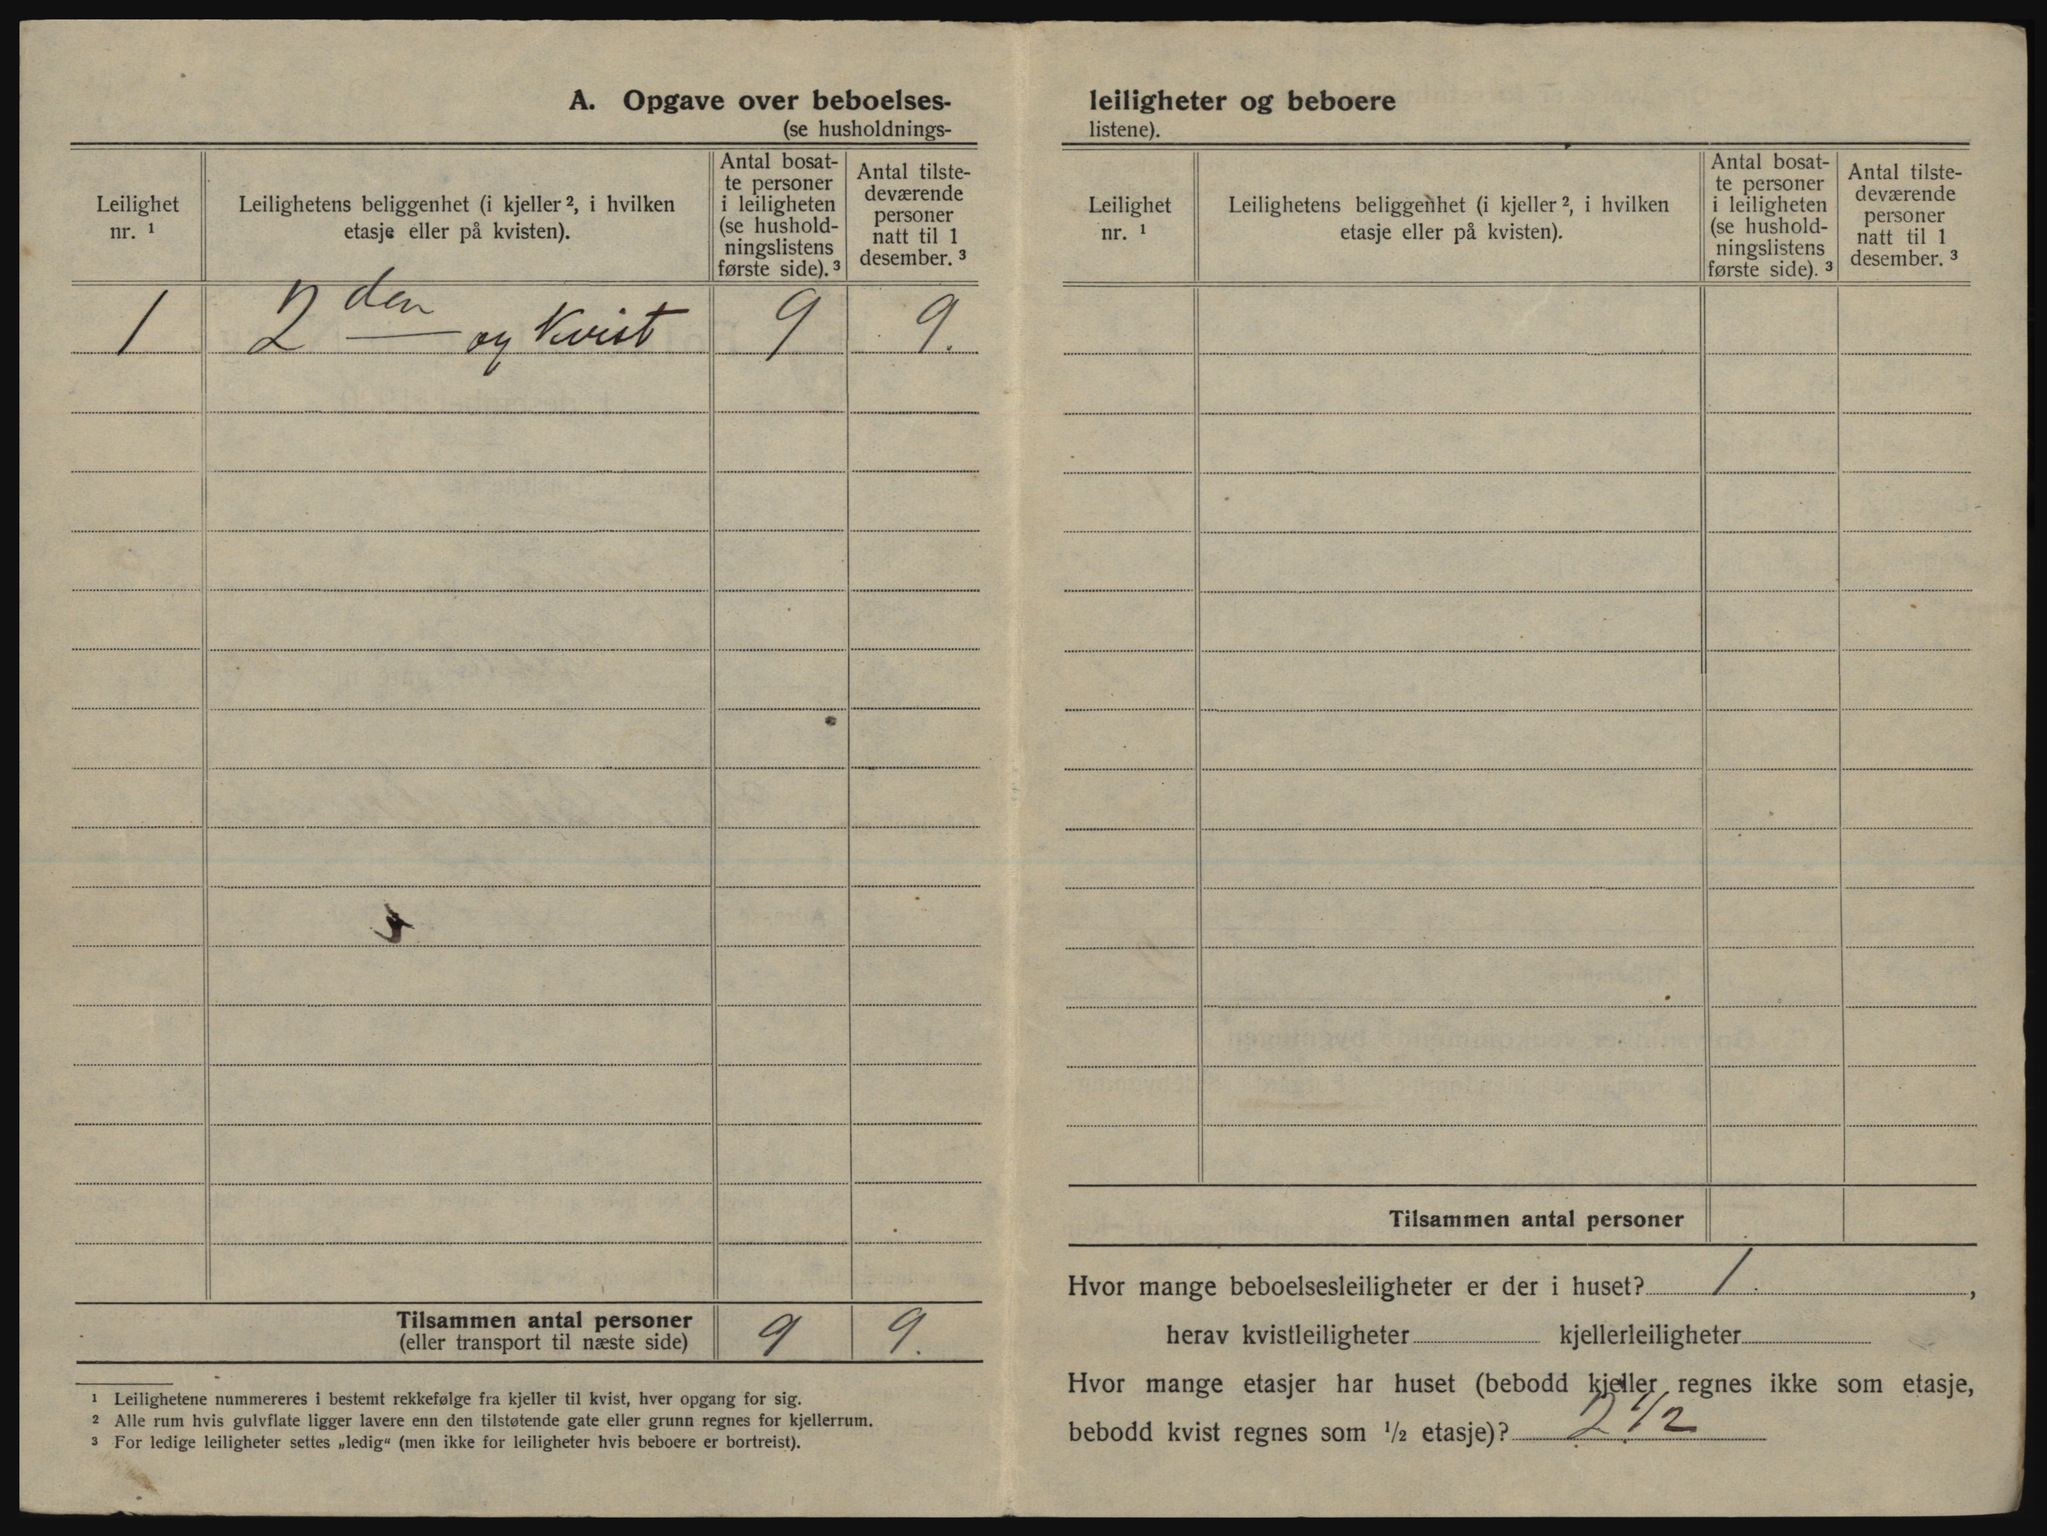 A. Opgave over beboelses-
(se husholdnings-
Leilighet
nr. ¹
Leilighetens beliggenhet (i kjeller ², i hvilken
etasje eller på kvisten).
Antal bosat-
te personer
i leiligheten
(se hushold-
ningslistens
første side). ³
Antal tilste-
deværende
personer
natt til 1
desember. ³
1 2den og Kvist 9 9.
Tilsammen antal personer
(eller transport til næste side)
9 9.
¹ Leilighetene nummereres i bestemt rekkefølge fra kjeller til kvist, hver opgang for sig.
² Alle rum hvis gulvflate ligger lavere enn den tilstøtende gate eller grunn regnes for kjellerrum.
³ For ledige leiligheter settes „ledig“ (men ikke for leiligheter hvis beboere er bortreist).
leiligheter og beboere
listene).
Leilighet
nr. ¹
Leilighetens beliggenhet (i kjeller ², i hvilken
etasje eller på kvisten).
Antal bosat-
te personer
i leiligheten
(se hushold-
ningslistens
første side). ³
Antal tilste-
deværende
personer
natt til 1
desember. ³
Tilsammen antal personer
Hvor mange beboelsesleiligheter er der i huset? 1.,
herav kvistleiligheter kjellerleiligheter
Hvor mange etasjer har huset (bebodd kjeller regnes ikke som etasje,
bebodd kvist regnes som ½ etasje)? 2 ½